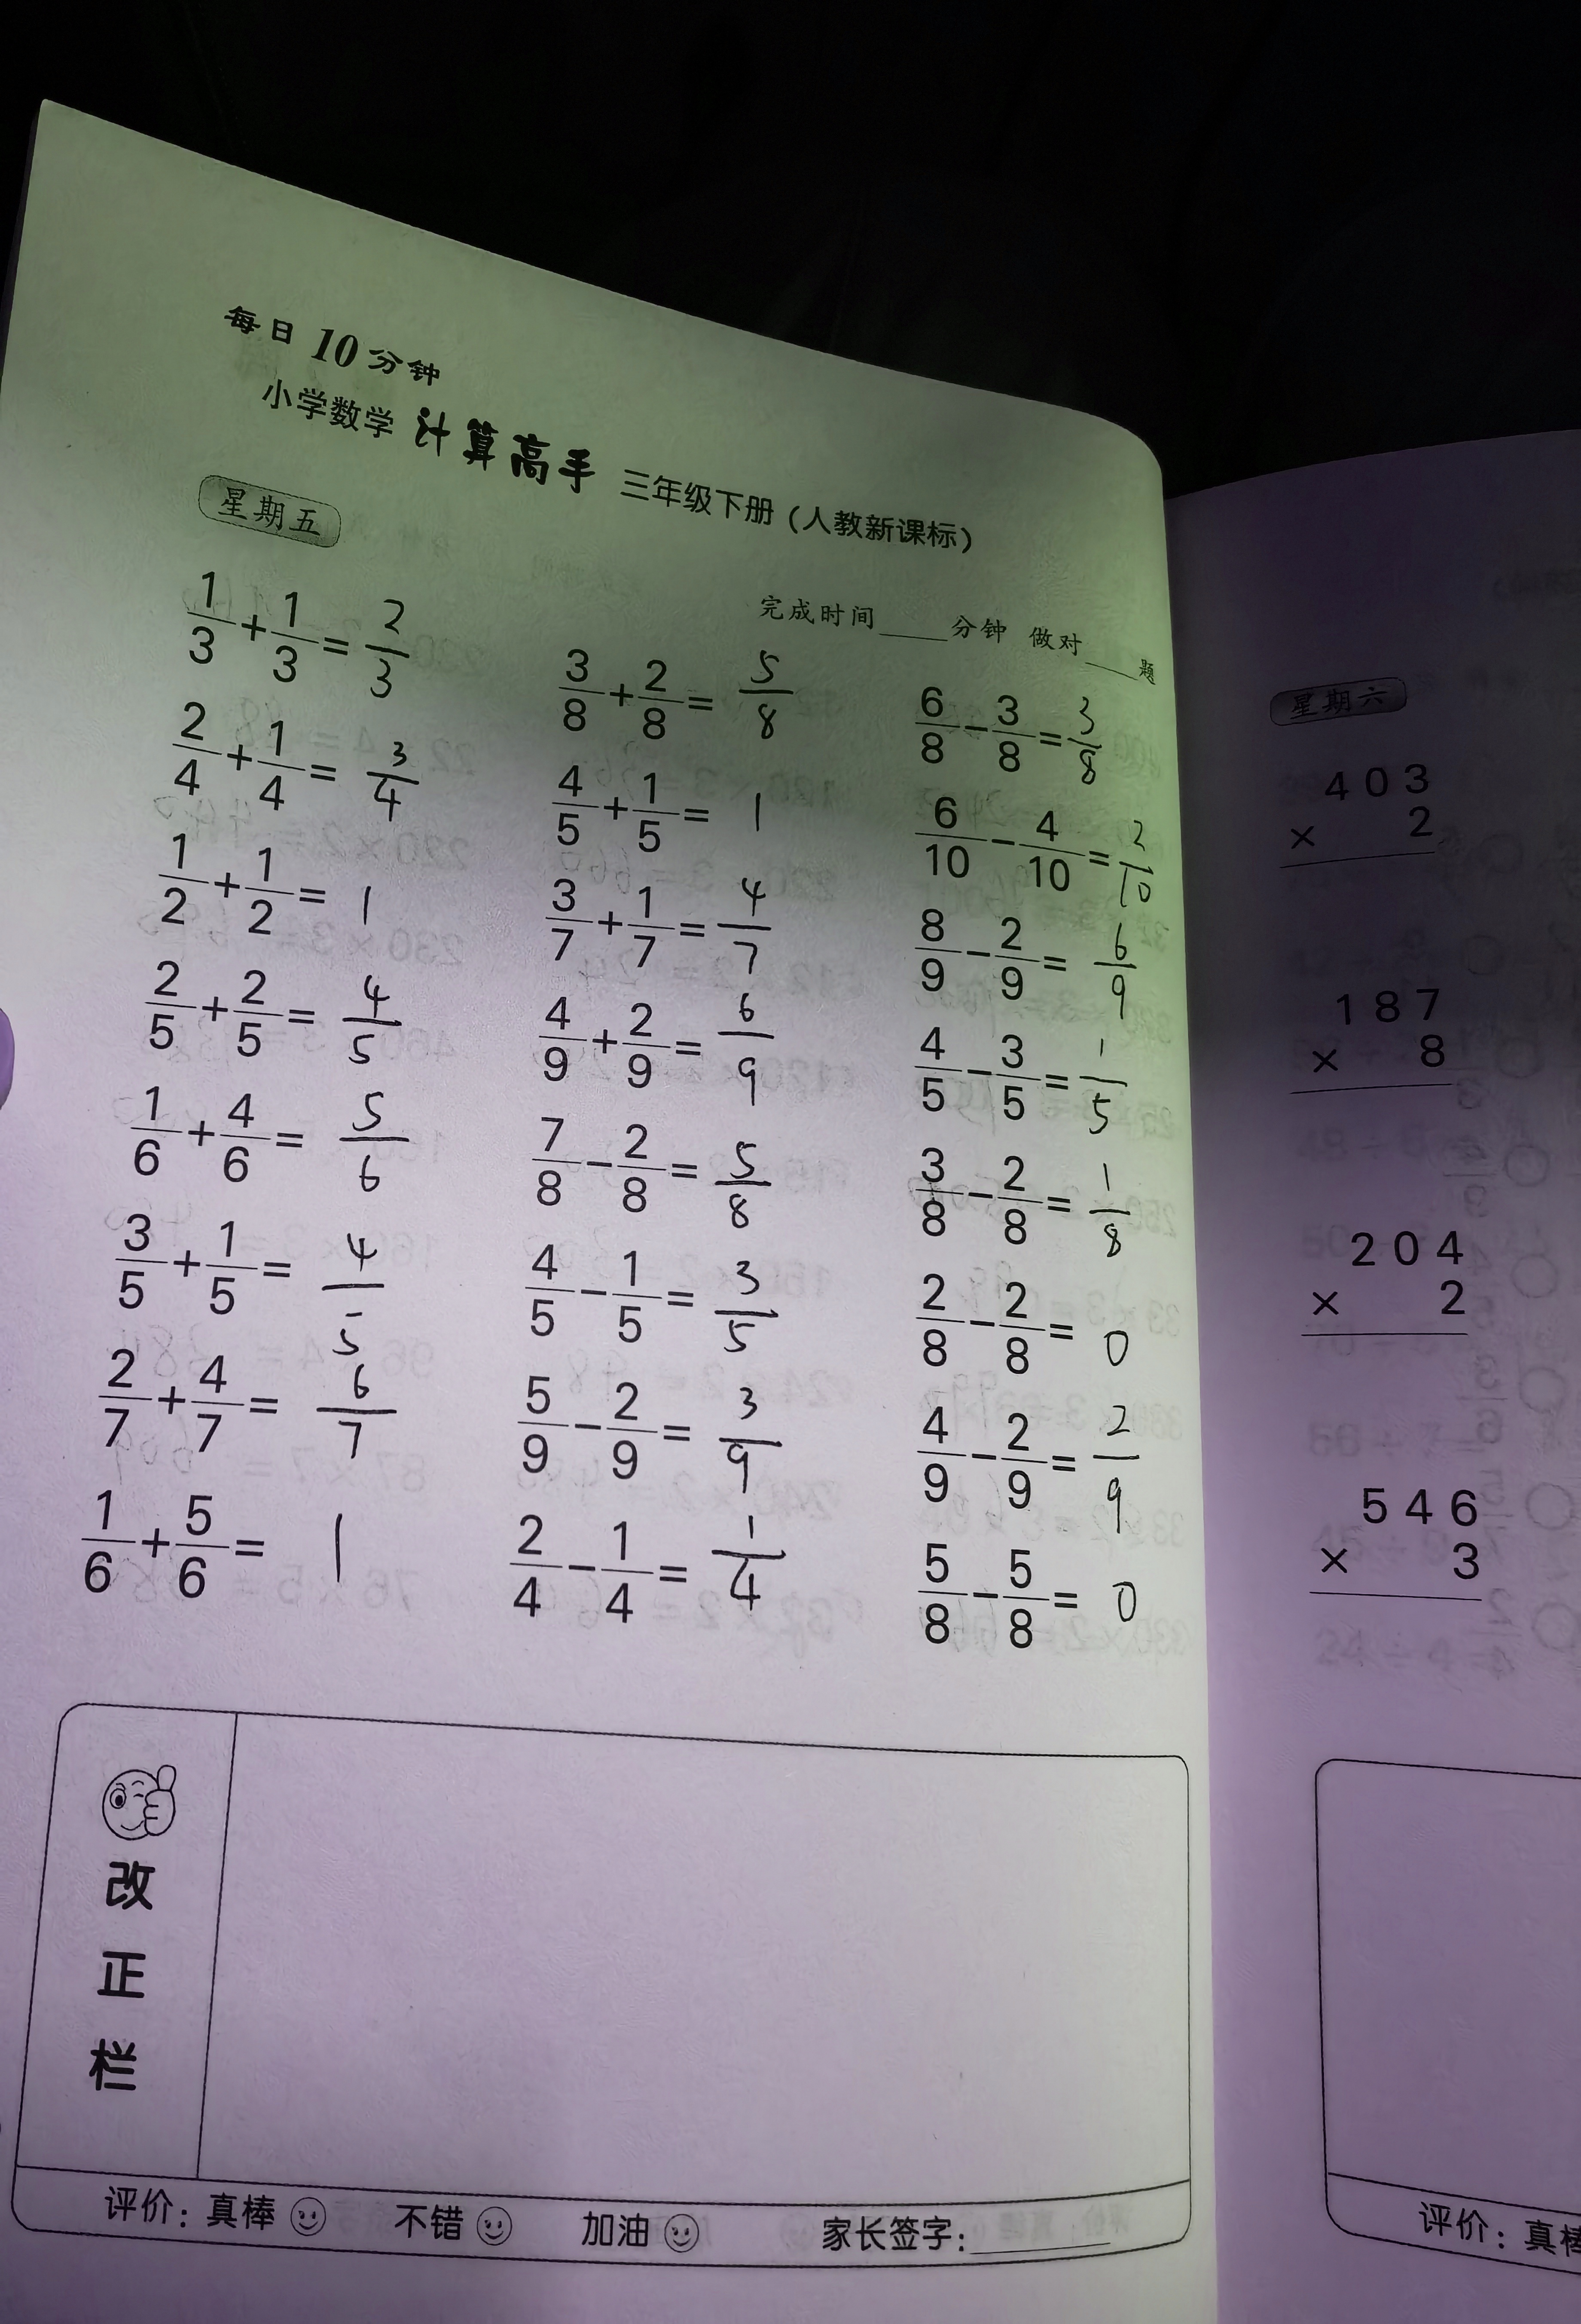 每日10分钟
小学数学 计算高手 三年级下册(人教新课标)
星期五
完成时间____分钟 做对____题
1/3+1/3=2/3
2/4+1/4=3/4
1/2+1/2=1
2/5+2/5=4/5
1/6+4/6=5/6
3/5+1/5=4/5
2/7+4/7=6/7
1/6+5/6=1
3/8+2/8=5/8
4/5+1/5=1
3/7+1/7=4/7
4/9+2/9=6/9
7/8-2/8=5/8
4/5-1/5=3/5
5/9-2/9=3/9
2/4-1/4=1/4
6/8-3/8=3/8
6/10-4/10=2/10
8/9-2/9=6/9
4/5-3/5=1/5
3/8-2/8=1/8
2/8-2/8=0
4/9-2/9=2/9
5/8-5/8=0
改正栏
评价:真棒 不错 加油 家长签字:________
星期六
403
× 2
187
× 8
204
× 2
546
× 3
评价:真棒